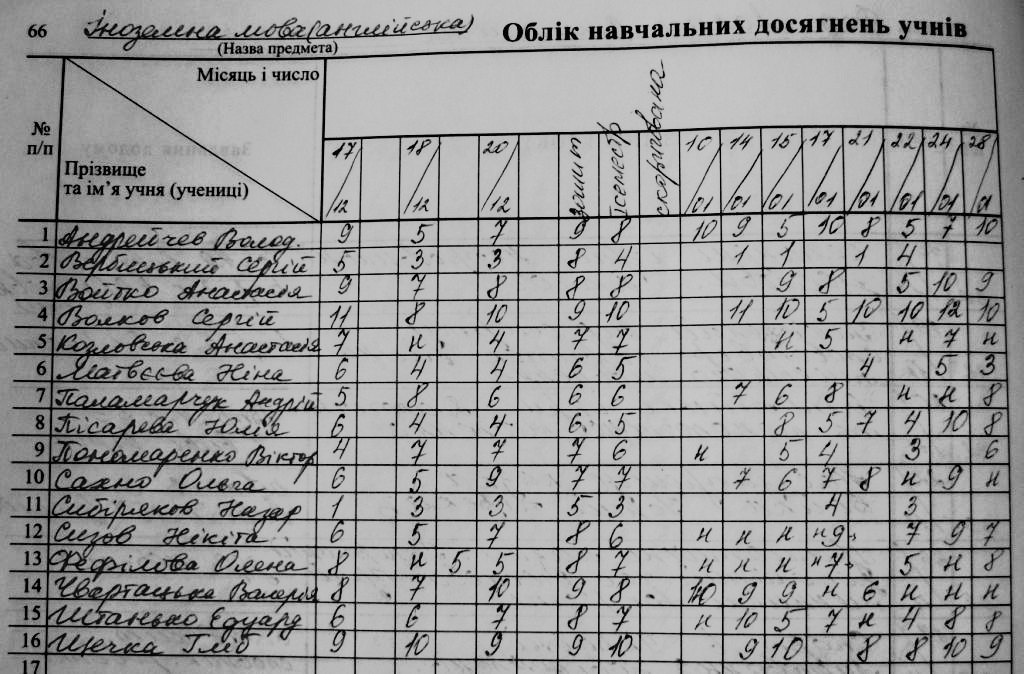 66 Іноземна мова (англійська) Облік навчальних досягнень учнів
(Назва предмета)
Місяць і число
№ п/п
Прізвище
та ім’я учня (учениці)
17/12 18/12 20/12 Зошит Ісеместр скоригована 10/01 14/01 15/01 17/01 21/01 22/01 24/01 28/01
1 Андрейчев Волод. 9 5 7 9 8 10 9 5 10 8 5 7 10
2 Вербицький Сергій 5 3 3 8 4 1 1 1 4
3 Войтко Анастасія 9 7 8 8 8 9 8 5 10 9
4 Волков Сергій 11 8 10 9 10 11 10 5 10 10 12 10
5 Козловська Анастасія 7 н 4 7 7 н 5 н 7 н
6 Матвєєва Ніна 6 4 4 6 5 4 5 3
7 Паламарчук Андрій 5 8 6 6 6 7 6 8 н н 8
8 Пісарева Юлія 6 4 4 6 5 8 5 7 4 10 8
9 Пономаренко Віктор 4 7 7 7 6 н 5 4 3 6
10 Сахно Ольга 6 5 9 7 7 7 6 7 8 н 9 н
11 Сибіряков Назар 1 3 3 5 3 4 3
12 Сизов Нікіта 6 5 7 8 6 н н н н9 7 9 7
13 Фефілова Олена 8 н 5 5 8 7 н н н н7 5 н 8
14 Чвартацька Валерія 8 7 10 9 8 10 9 9 н 6 н н н
15 Штанько Едуард 6 6 7 8 7 н 10 5 7 н 4 8 8
16 Щечка Гліб 9 10 9 9 10 9 10 8 8 10 9
17